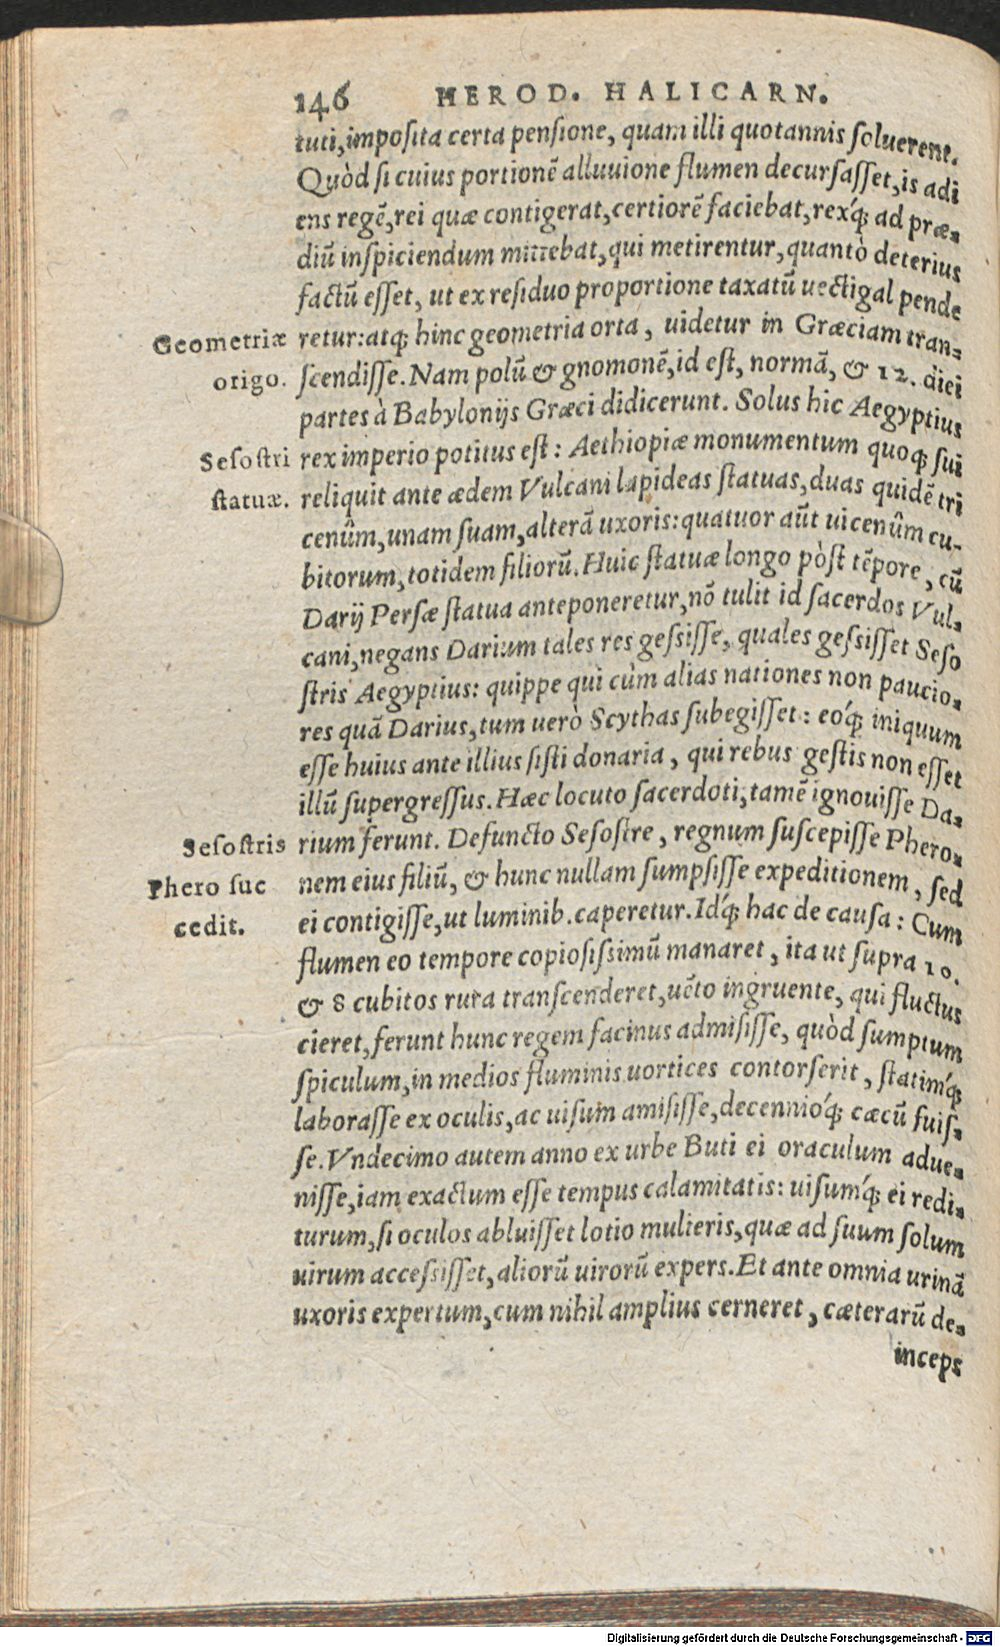 146 HEROD. HALICARN.
tuti, imposita certa pensione, quam illi quotannis soluerent.
Quòd si cuius portionẽ alluuione flumen decursasset, is adi
ens regẽ, rei quæ contigerat, certiorẽ faciebat, rex´q; ad præ-
diũ inspiciendum mittebat, qui metirentur, quantò deterius
factũ esset, ut ex residuo proportione taxatũ uectigal pende
Geometriæ retur: atq; hinc geometria orta, uidetur in Græciam tran-
origo. scendisse. Nam polũ & gnomonẽ, id est, normã, & 12. diei
partes à Babylonijs Græci didicerunt. Solus hic Aegyptius
Sesostri rex imperio potitus est: Aethiopiæ monumentum quoq; sui
statuæ. reliquit ante ædem Vulcani lapideas statuas, duas quidẽ tri
cenûm, unam suam, alterã uxoris: quatuor aũt uicenûm cu-
bitorum, totidem filiorũ. Huic statuæ longo pòst tẽpore, cũ
Darij Persæ statua anteponeretur, nõ tulit id sacerdos Vul-
cani, negans Darium tales res gessisse, quales gessisset Seso
stris Aegyptius: quippe qui cùm alias nationes non paucio-
res quã Darius, tum uerò Scythas subegisset: eo´q; iniquum
esse huius ante illius sisti donaria, qui rebus gestis non esset
illũ supergressus. Hæc locuto sacerdoti, tamẽ ignouisse Da-
Sesostris rium ferunt. Defuncto Sesostre, regnum suscepisse Phero-
Phero suc nem eius filiũ, & hunc nullam sumpsisse expeditionem, sed
cedit. ei contigisse, ut luminib. caperetur. Id´q; hac de causa: Cum
flumen eo tempore copiosissimũ manaret, ita ut supra 10.
& 8 cubitos rura transcenderet, uẽto ingruente, qui fluctus
cieret, ferunt hunc regem facinus admisisse, quòd sumptum
spiculum, in medios fluminis uortices contorserit, statim´q;
laborasse ex oculis, ac uisum amisisse, decennio´q; cæcũ fuis-
se. Vndecimo autem anno ex urbe Buti ei oraculum adue-
nisse, iam exactum esse tempus calamitatis: uisum´q; ei redi-
turum, si oculos abluisset lotio mulieris, quæ ad suum solum
uirum accessisset, aliorũ uirorũ expers. Et ante omnia urinã
uxoris expertum, cum nihil amplius cerneret, cæterarũ de-
inceps
Digitalisierung gefördert durch die Deutsche Forschungsgemeinschaft - DFG